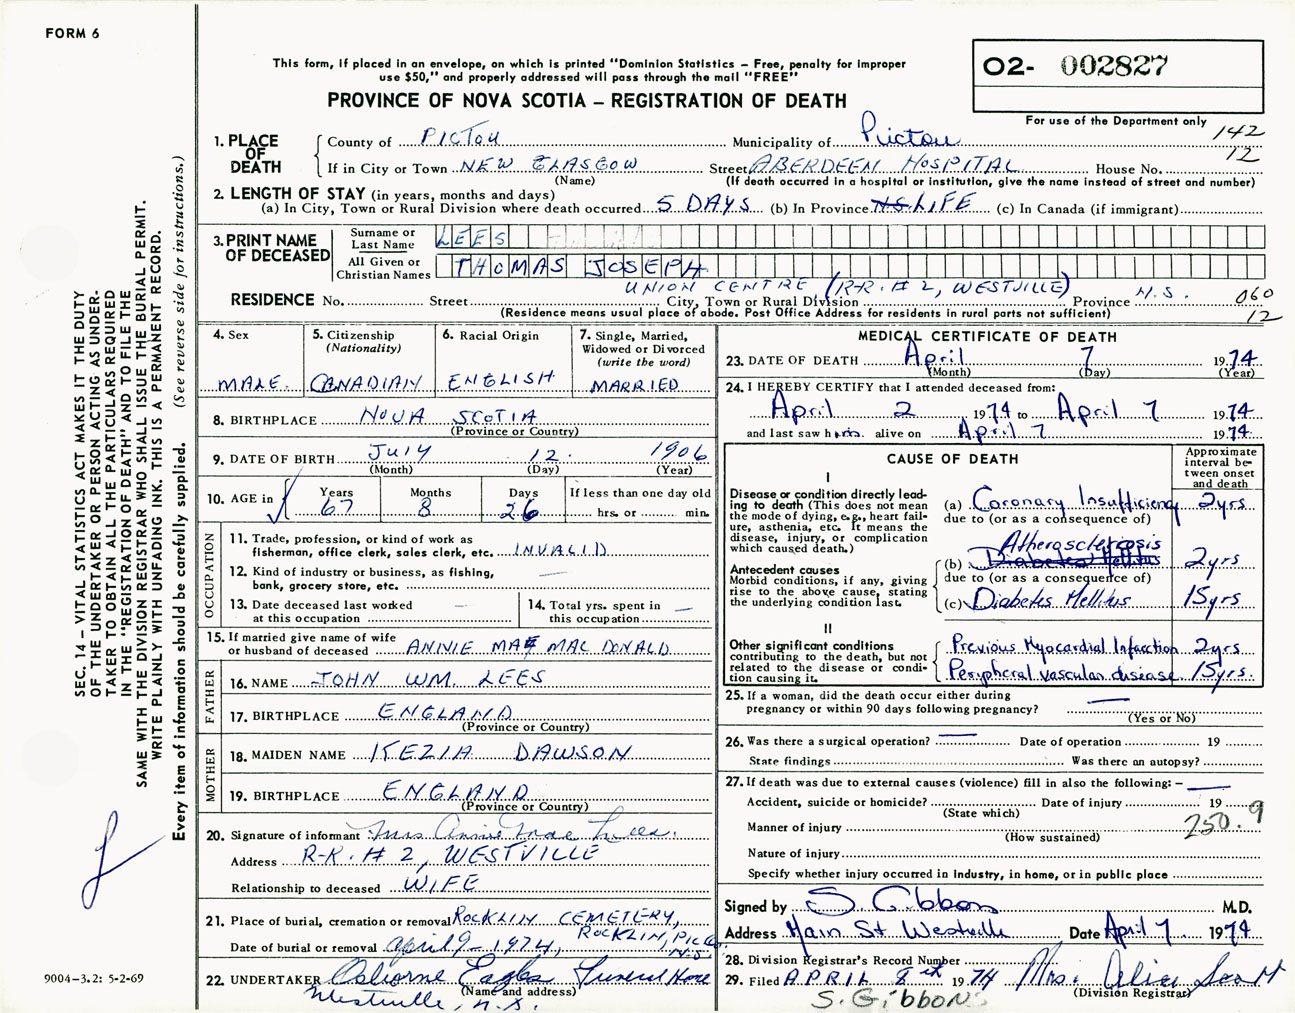 FORM 6
This form, if placed in an envelope, on which is printed "Dominion Statistics – Free, penalty for improper
use $50," and properly addressed will pass through the mail "FREE"
PROVINCE OF NOVA SCOTIA – REGISTRATION OF DEATH
O2- 002827
For use of the Department only
142
12
1. PLACE OF DEATH
County of PICTOU Municipality of Pictou
If in City or Town NEW GLASGOW Street ABERDEEN HOSPITAL House No.
(Name) (If death occurred in a hospital or institution, give the name instead of street and number)
2. LENGTH OF STAY (in years, months and days)
(a) In City, Town or Rural Division where death occurred 5 DAYS (b) In Province NS LIFE (c) In Canada (if immigrant)
3. PRINT NAME OF DECEASED
Surname or Last Name LEES
All Given or Christian Names THOMAS JOSEPH
UNION CENTRE (R.R. # 2, WESTVILLE)
RESIDENCE No. Street City, Town or Rural Division Province N.S. 060
(Residence means usual place of abode. Post Office Address for residents in rural parts not sufficient) 12
4. Sex MALE
5. Citizenship (Nationality) CANADIAN
6. Racial Origin ENGLISH
7. Single, Married, Widowed or Divorced (write the word) MARRIED
8. BIRTHPLACE NOVA SCOTIA
(Province or Country)
9. DATE OF BIRTH JULY 12 1906
(Month) (Day) (Year)
10. AGE in Years 67 Months 8 Days 26 If less than one day old
hrs. or min.
OCCUPATION
11. Trade, profession, or kind of work as
fisherman, office clerk, sales clerk, etc. INVALID
12. Kind of industry or business, as fishing,
bank, grocery store, etc. —
13. Date deceased last worked
at this occupation —
14. Total yrs. spent in
this occupation —
15. If married give name of wife
or husband of deceased ANNIE MAE MAC DONALD
FATHER
16. NAME JOHN WM. LEES
17. BIRTHPLACE ENGLAND
(Province or Country)
MOTHER
18. MAIDEN NAME KEZIA DAWSON
19. BIRTHPLACE ENGLAND
(Province or Country)
20. Signature of informant Mrs Annie Mae Lees.
Address R.R. # 2, WESTVILLE
Relationship to deceased WIFE
21. Place of burial, cremation or removal ROCKLIN CEMETERY,
ROCKLIN, PIC. Co.
N.S.
Date of burial or removal April 9 – 1974,
22. UNDERTAKER Osborne Eagles Funeral Home
(Name and address)
Westville, N.S.
MEDICAL CERTIFICATE OF DEATH
23. DATE OF DEATH April 7 1974
(Month) (Day) (Year)
24. I HEREBY CERTIFY that I attended deceased from:
April 2 1974 to April 7 1974
and last saw him alive on April 7 1974
CAUSE OF DEATH
Approximate interval between onset and death
I
Disease or condition directly leading to death (This does not mean the mode of dying, e.g., heart failure, asthenia, etc. It means the disease, injury, or complication which caused death.)
(a) Coronary Insufficiency 2yrs
due to (or as a consequence of)
Atherosclerosis
(b) Diabetes Mellitus 2yrs
due to (or as a consequence of)
Antecedent causes
Morbid conditions, if any, giving rise to the above cause, stating the underlying condition last.
(c) Diabetes Mellitus 15yrs
II
Other significant conditions
contributing to the death, but not related to the disease or condition causing it.
Previous Myocardial Infarction 2yrs
Peripheral vascular disease 15yrs.
25. If a woman, did the death occur either during
pregnancy or within 90 days following pregnancy? —
(Yes or No)
26. Was there a surgical operation? — Date of operation 19
State findings Was there an autopsy?
27. If death was due to external causes (violence) fill in also the following: – —
Accident, suicide or homicide? Date of injury 19
(State which)
250.9
Manner of injury
(How sustained)
Nature of injury
Specify whether injury occurred in industry, in home, or in public place
Signed by S. Gibbons M.D.
Address Main St Westville Date April 7 1974
28. Division Registrar's Record Number
29. Filed APRIL 8th 1974 Mrs. Alice Scott
(Division Registrar)
S. GIBBONS
SEC. 14 – VITAL STATISTICS ACT MAKES IT THE DUTY
OF THE UNDERTAKER OR PERSON ACTING AS UNDER-
TAKER TO OBTAIN ALL THE PARTICULARS REQUIRED
IN THE "REGISTRATION OF DEATH" AND TO FILE THE
SAME WITH THE DIVISION REGISTRAR WHO SHALL ISSUE THE BURIAL PERMIT.
WRITE PLAINLY WITH UNFADING INK. THIS IS A PERMANENT RECORD.
Every item of information should be carefully supplied. (See reverse side for instructions.)
9004–3.2: 5-2-69